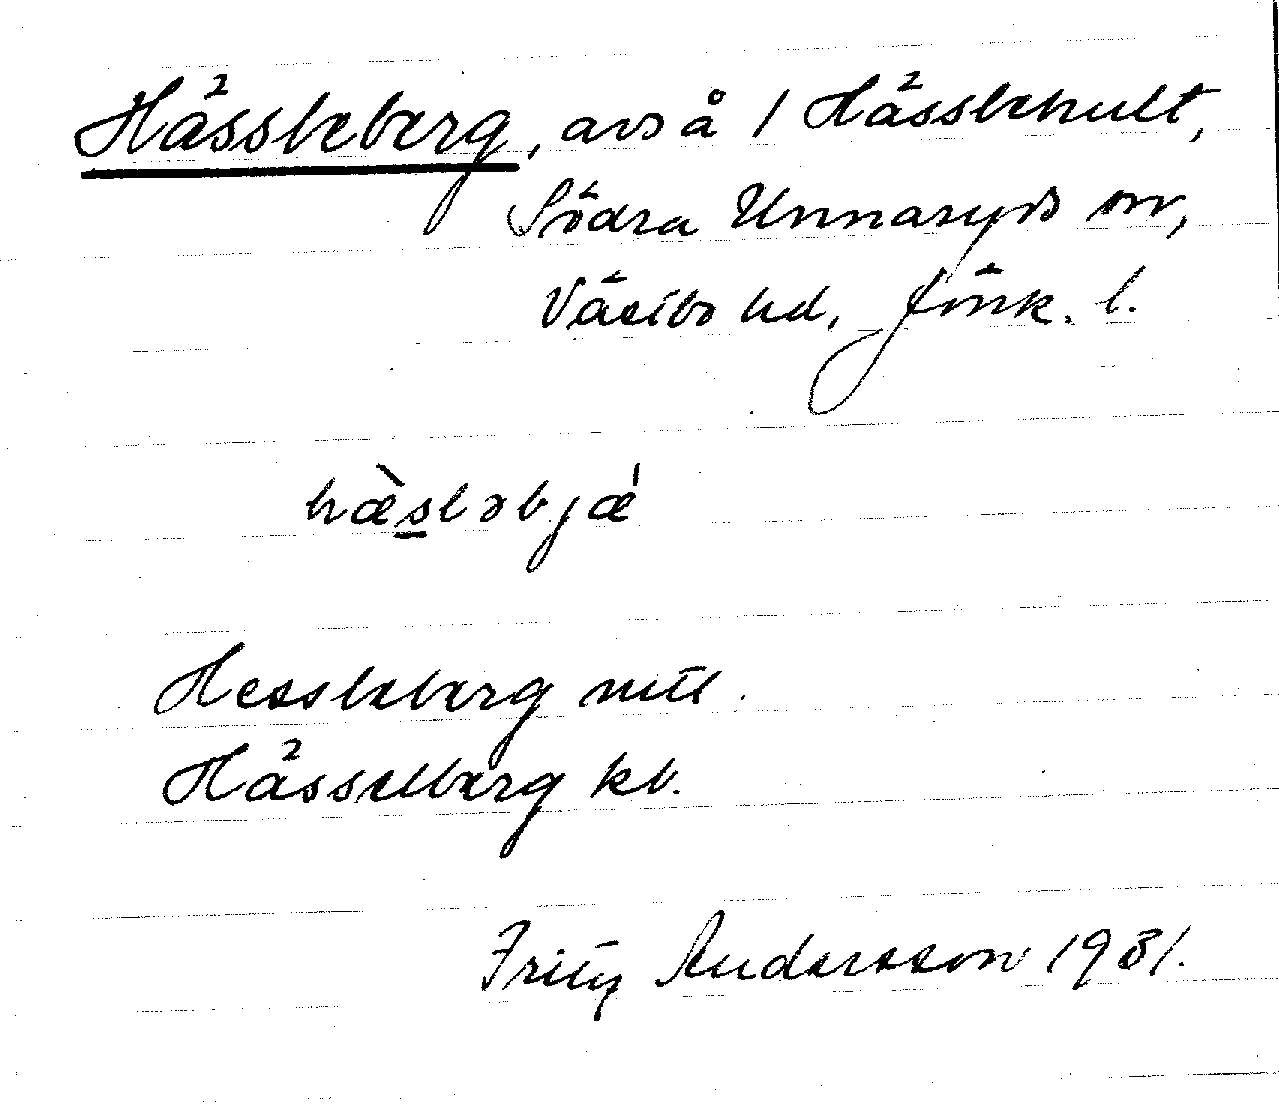 Hässleberg, avs å 1 Hässlehult,
Södra Unnaryds sn,
Västbo hd, Jönk. l.
hæ̀sləbjæ
Hessleberg mtl
Hässelberg kb.
Fritz Andersson 1931.